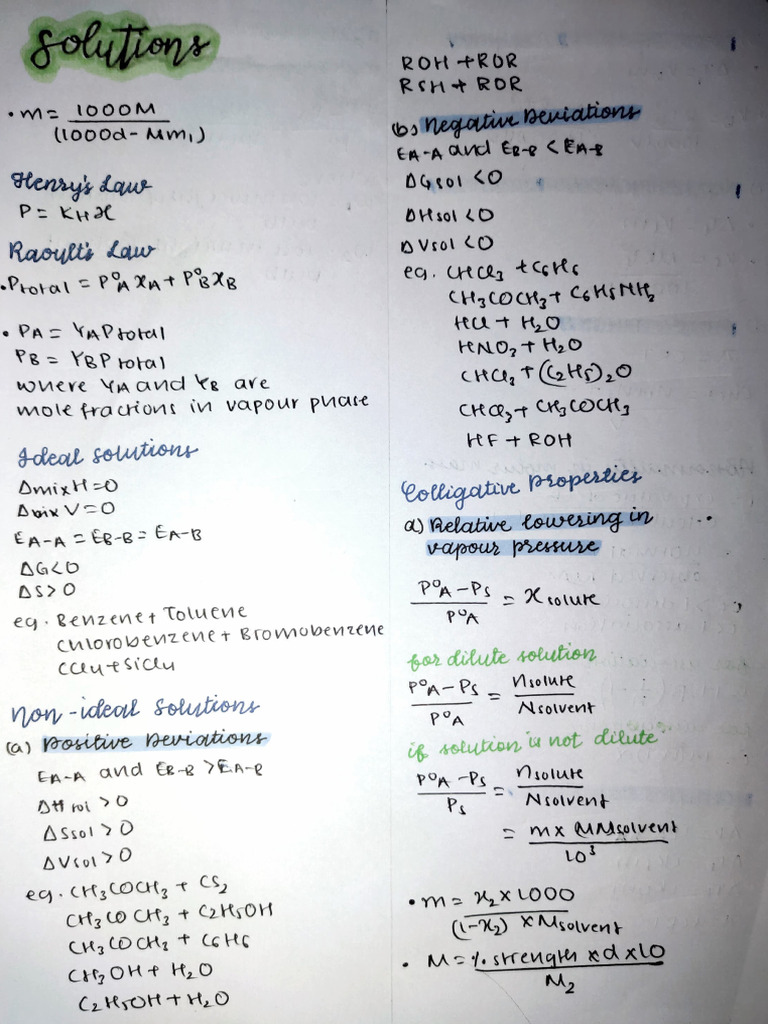 Solutions
• m = 1000M / (1000d - Mm₁)
Henry's Law
P = KHx
Raoult's Law
• Ptotal = P°A xA + P°B xB
• PA = YA Ptotal
PB = YB Ptotal
where YA and YB are
mole fractions in vapour phase
Ideal solutions
ΔmixH = 0
ΔmixV = 0
EA-A = EB-B = EA-B
ΔG<0
ΔS>0
eg. Benzene + Toluene
Chlorobenzene + Bromobenzene
CCl₄ + SiCl₄
Non-ideal Solutions
(a) Positive Deviations
EA-A and EB-B > EA-B
ΔHsol > 0
ΔSsol > 0
ΔVsol > 0
eg. CH₃COCH₃ + CS₂
CH₃COCH₃ + C₂H₅OH
CH₃COCH₃ + C₆H₆
CH₃OH + H₂O
C₂H₅OH + H₂O
ROH + ROR
RSH + ROR
(b) Negative Deviations
EA-A and EB-B < EA-B
ΔGsol < 0
ΔHsol < 0
ΔVsol < 0
eg. CHCl₃ + C₆H₆
CH₃COCH₃ + C₆H₅NH₂
HCl + H₂O
HNO₃ + H₂O
CHCl₃ + (C₂H₅)₂O
CHCl₃ + CH₃COCH₃
HF + ROH
Colligative Properties
a) Relative lowering in
vapour pressure
P°A - Ps / P°A = xsolute
for dilute solution
P°A - Ps / P°A = nsolute / Nsolvent
if solution is not dilute
P°A - Ps / Ps = nsolute / Nsolvent
= m x MMsolvent / 10³
• m = x₂ x 1000 / (1-x₂) x Msolvent
• M = % strength x d x 10 / M₂